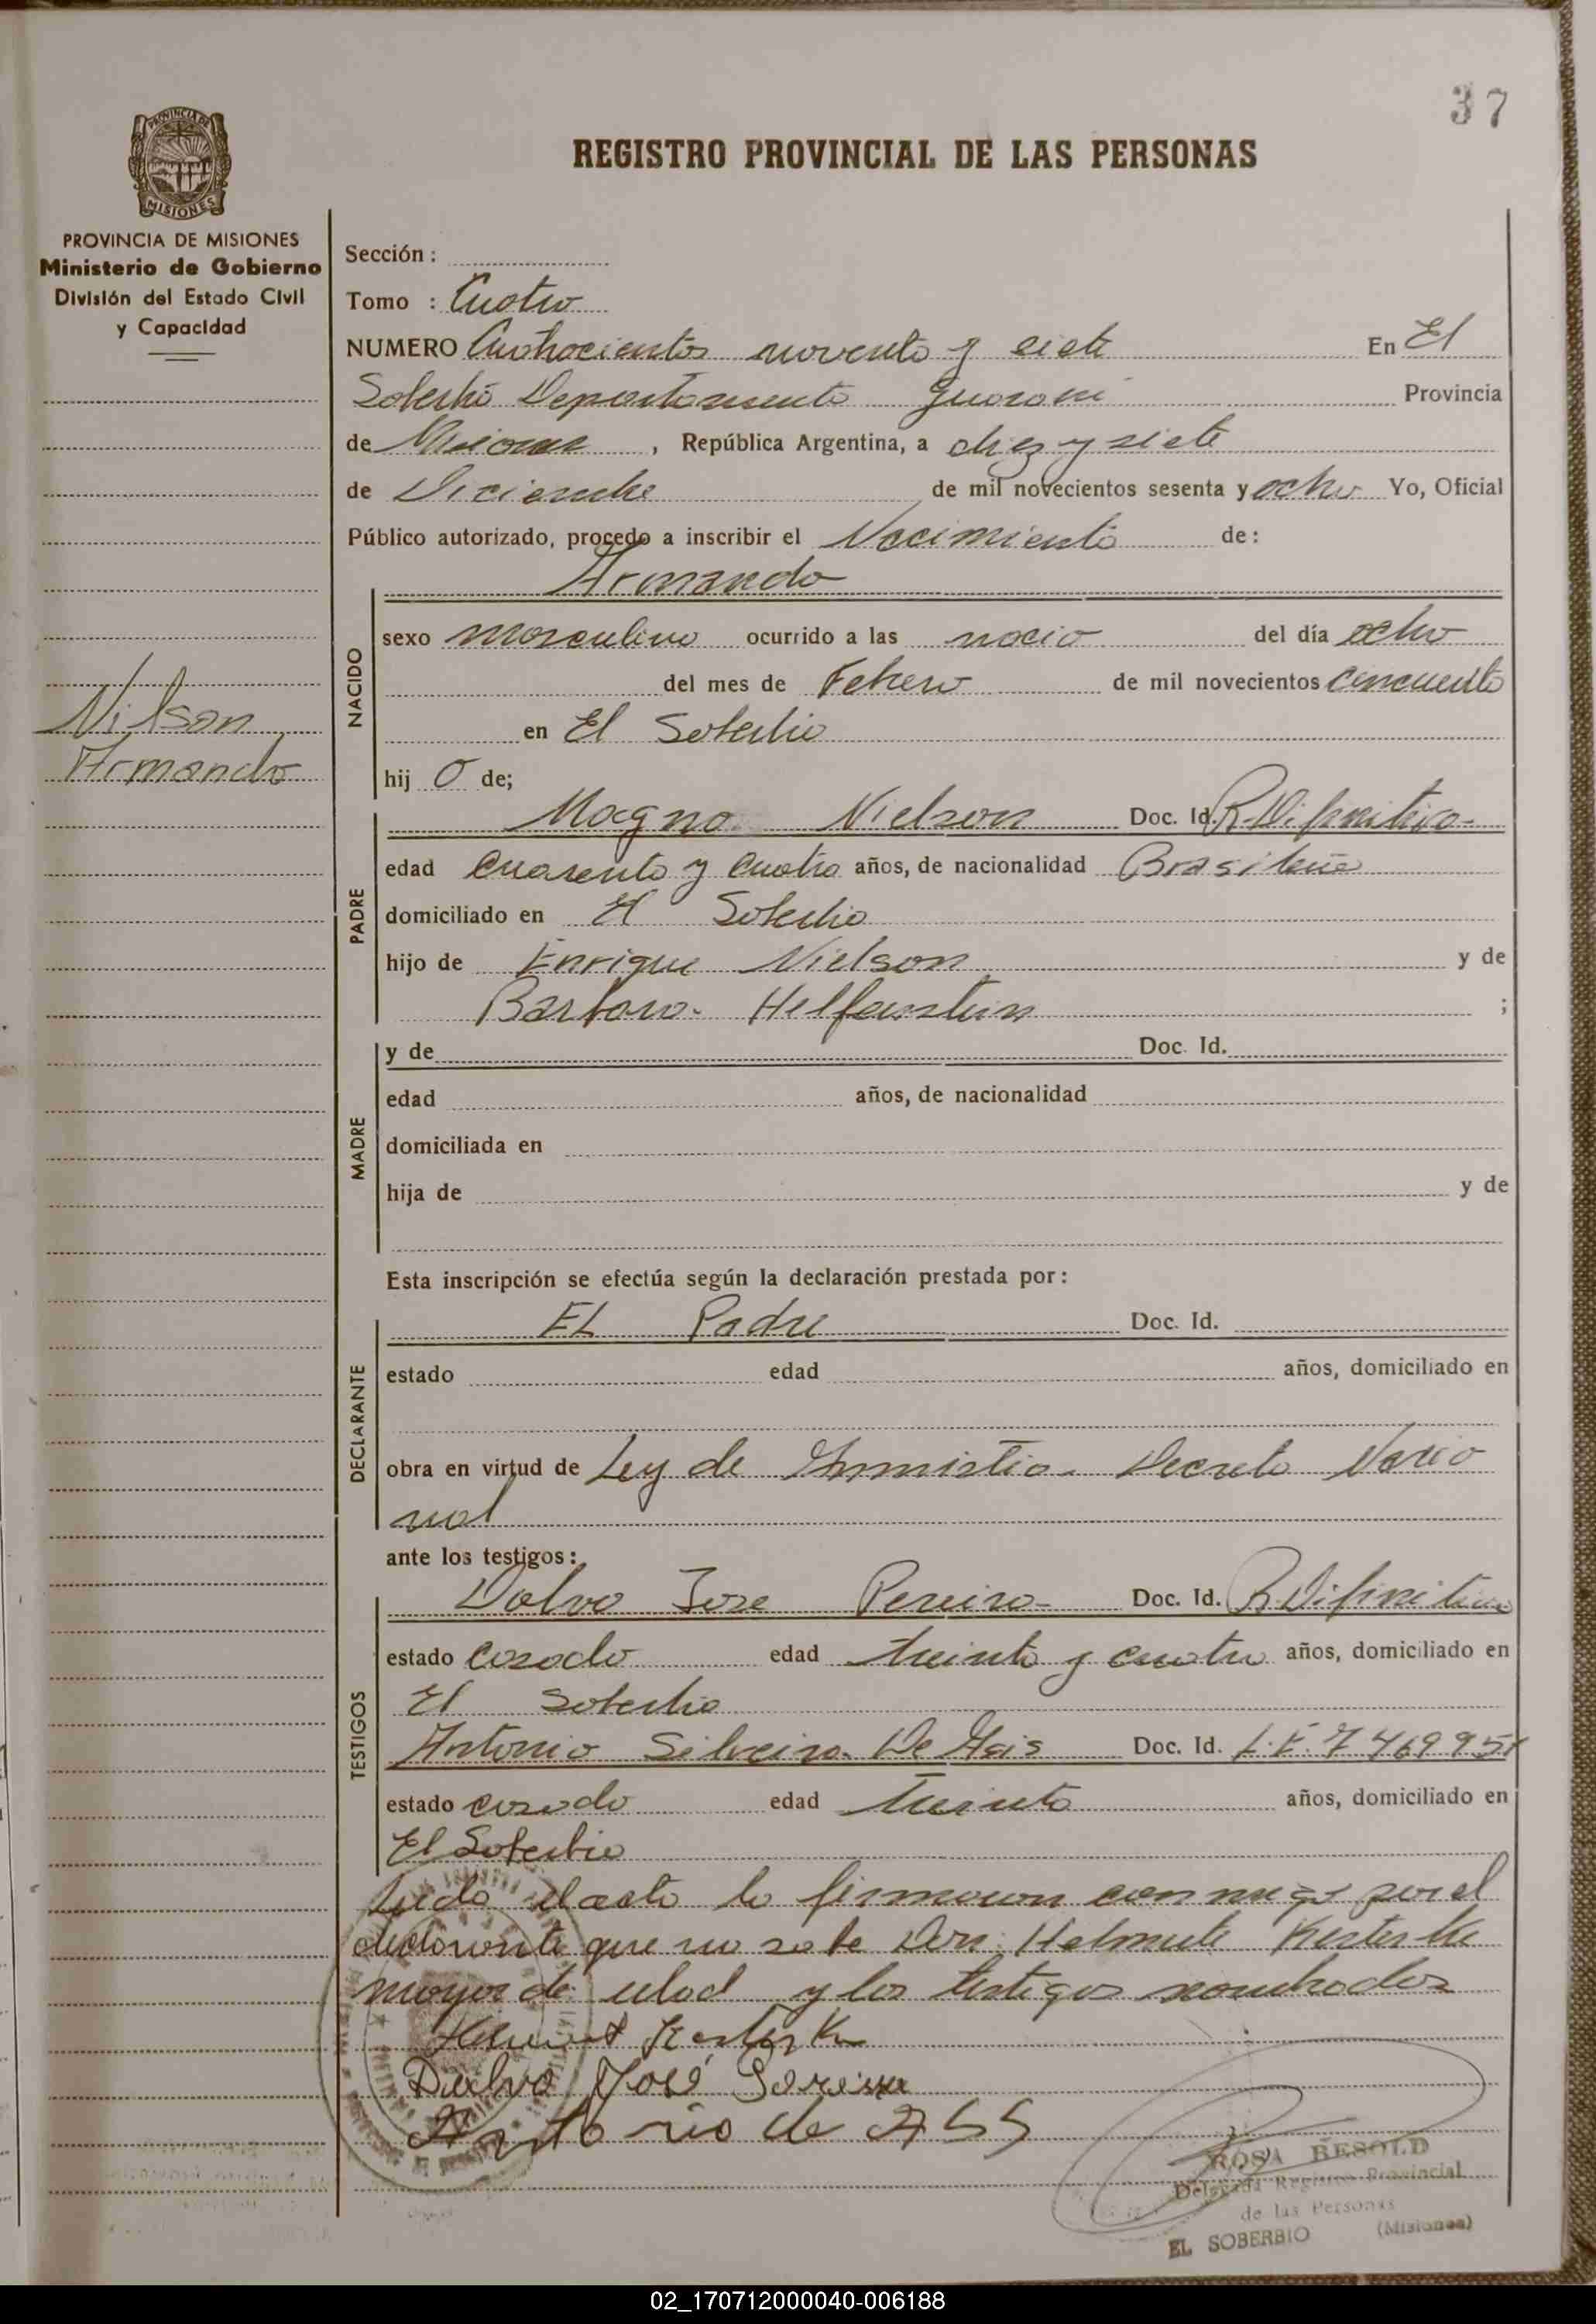 37
PROVINCIA DE
MISIONES
REGISTRO PROVINCIAL DE LAS PERSONAS
PROVINCIA DE MISIONES
Ministerio de Gobierno
División del Estado Civil
y Capacidad
Sección :
Tomo : Cuatro
NUMERO Cuatrocientos noventa y siete En El
Soberbio Departamento Guarani Provincia
de Misiones , República Argentina, a diez y siete
de Diciembre de mil novecientos sesenta y ocho Yo, Oficial
Público autorizado, procedo a inscribir el Nacimiento de:
Armando
NACIDO
sexo masculino ocurrido a las nacio del día ocho
del mes de Febrero de mil novecientos cincuenta
en El Soberbio
hij o de;
Nilson
Armando
PADRE
Magno Nielson Doc. Id. R. Difinitiva-
edad cuarenta y cuatro años, de nacionalidad Brasileña
domiciliado en El Soberbio
hijo de Enrique Nielson y de
Barbara Helfenstein ;
MADRE
y de Doc. Id.
edad años, de nacionalidad
domiciliada en
hija de y de
Esta inscripción se efectúa según la declaración prestada por :
DECLARANTE
EL Padre Doc. Id.
estado edad años, domiciliado en
obra en virtud de Ley de Decreto Nacio
nal
ante los testigos :
TESTIGOS
Dalvo Jose Pereira- Doc. Id. R. Difinitiva
estado casado edad treinta y cuatro años, domiciliado en
El Soberbio
Antonio Silveira De Asis Doc. Id. L.E. 7469951
estado casado edad treinta años, domiciliado en
El Soberbio
Leida el acta lo firmaron con migo por el
declarante que no sabe Don Helmute
mayor de edad y los testigos nombrados
Dalvo José Pereira
Antonio de ASS
ROSA RESOLD
Delegada Registro Provincial
de las Personas
EL SOBERBIO (Misiones)
02_170712000040-006188